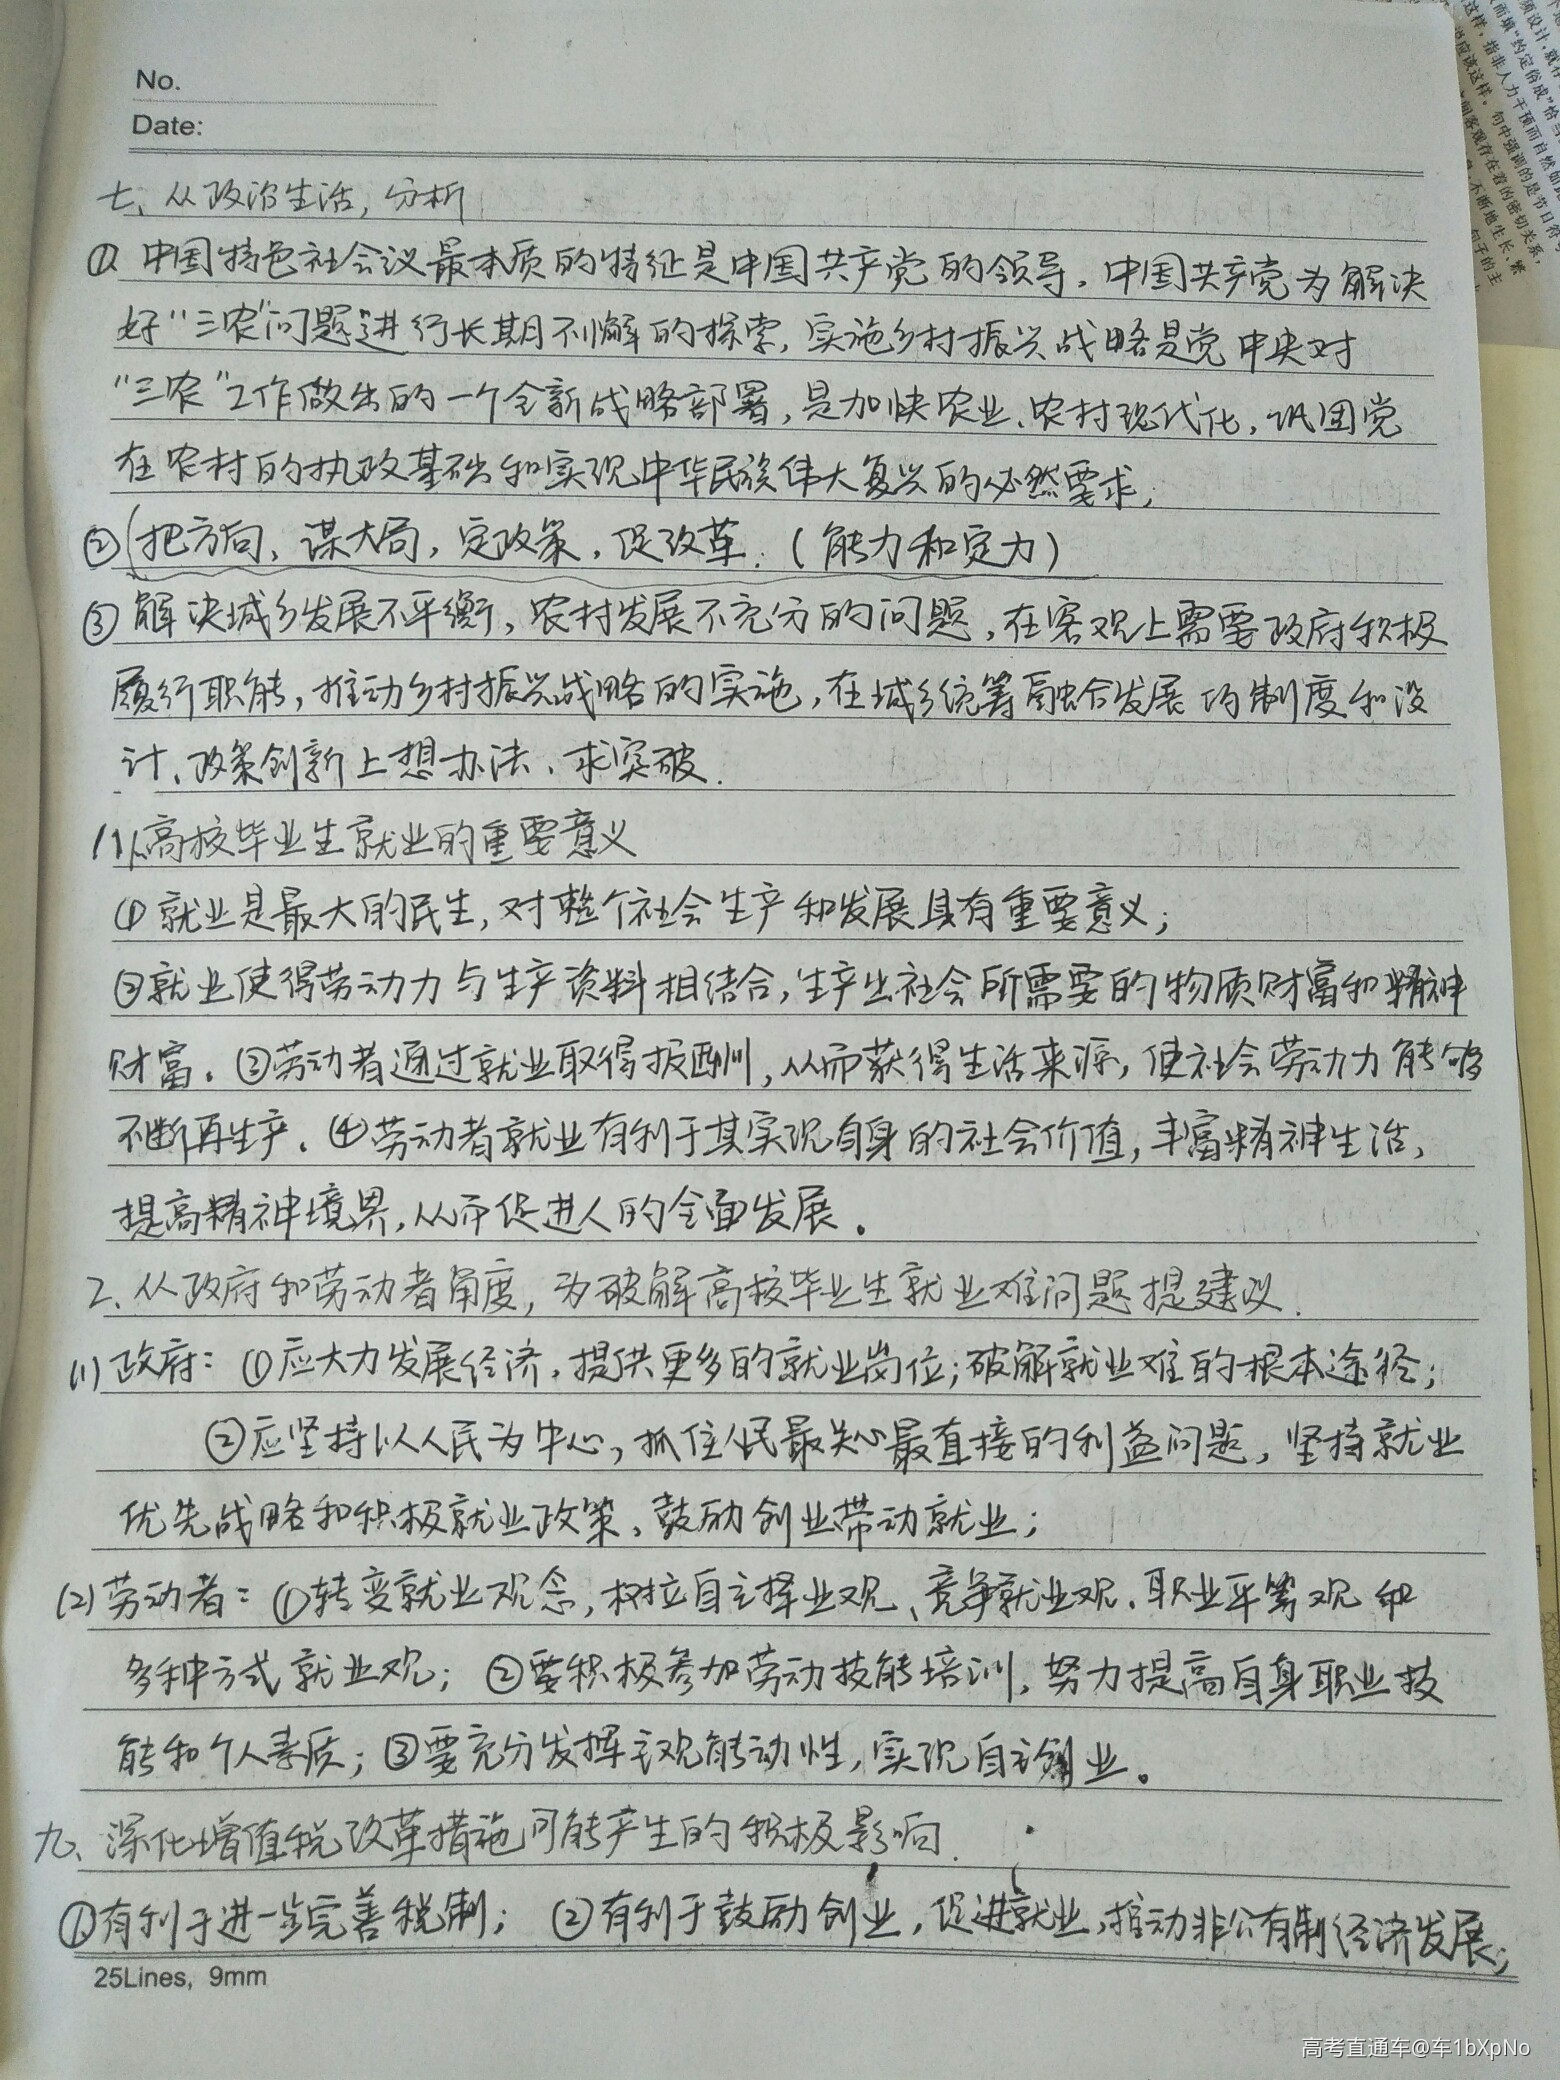 No.
Date:
七、从政治生活,分析
①. 中国特色社会议最本质的特征是中国共产党的领导. 中国共产党为解决
好“三农”问题进行长期不懈的探索, 实施乡村振兴战略是党中央对
“三农”工作做出的一个全新战略部署, 是加快农业、农村现代化, 巩固党
在农村的执政基础和实现中华民族伟大复兴的必然要求;
②(把方向、谋大局, 定政策, 促改革. (能力和定力)
③ 解决城乡发展不平衡, 农村发展不充分的问题, 在客观上需要政府积极
履行职能, 推动乡村振兴战略的实施, 在城乡统筹融合发展的制度和设
计、政策创新上想办法、求突破.
高校毕业生就业的重要意义
① 就业是最大的民生, 对整个社会生产和发展具有重要意义;
②就业使得劳动力与生产资料相结合, 生产出社会所需要的物质财富和精神
财富. ③劳动者通过就业取得报酬, 从而获得生活来源, 使社会劳动力能够
不断再生产. ④劳动者就业有利于其实现自身的社会价值, 丰富精神生活,
提高精神境界, 从而促进人的全面发展。
2. 从政府和劳动者角度, 为破解高校毕业生就业难问题提建议.
(1) 政府: ①应大力发展经济, 提供更多的就业岗位; 破解就业难的根本途径;
②应坚持以人民为中心, 抓住人民最关心最直接的利益问题, 坚持就业
优先战略和积极就业政策, 鼓励创业带动就业;
(2) 劳动者: ①转变就业观念, 树立自主择业观、竞争就业观、职业平等观和
多种方式就业观; ②要积极参加劳动技能培训, 努力提高自身职业技
能和个人素质; ③要充分发挥主观能动性, 实现自主创业。
九、深化增值税改革措施可能产生的积极影响.
①有利于进一步完善税制; ②有利于鼓励创业, 促进就业, 推动非公有制经济发展;
25Lines, 9mm
高考直通车@车1bXpNo